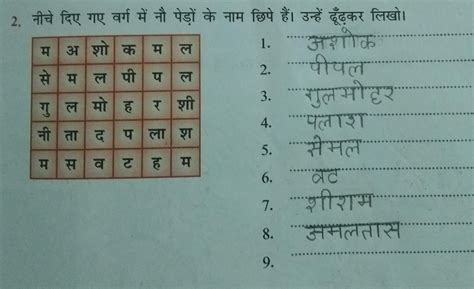 2. नीचे दिए गए वर्ग में नौ पेड़ों के नाम छिपे हैं। उन्हें ढूँढ़कर लिखो।
म अ शो क म ल
से म ल पी प ल
गु ल मो ह र शी
नी ता द प ला श
म स व ट ह म
1. अशोक
2. पीपल
3. गुलमोहर
4. पलाश
5. सेमल
6. वट
7. शीशम
8. अमलतास
9.